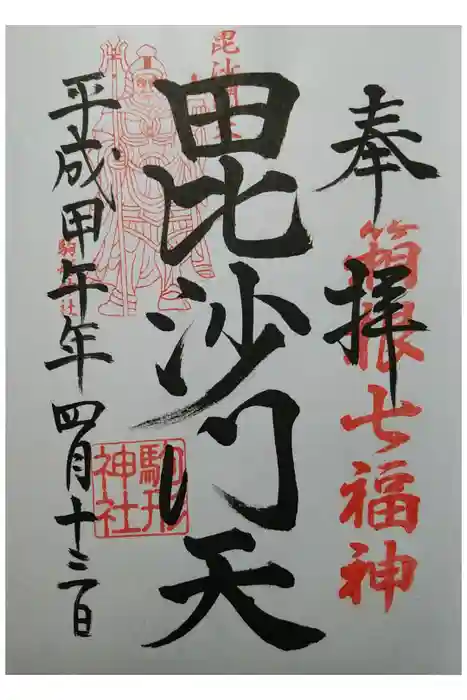 奉拝
箱根七福神
毘沙門天
毘沙門天
駒形
神社
平成甲午年四月十三日